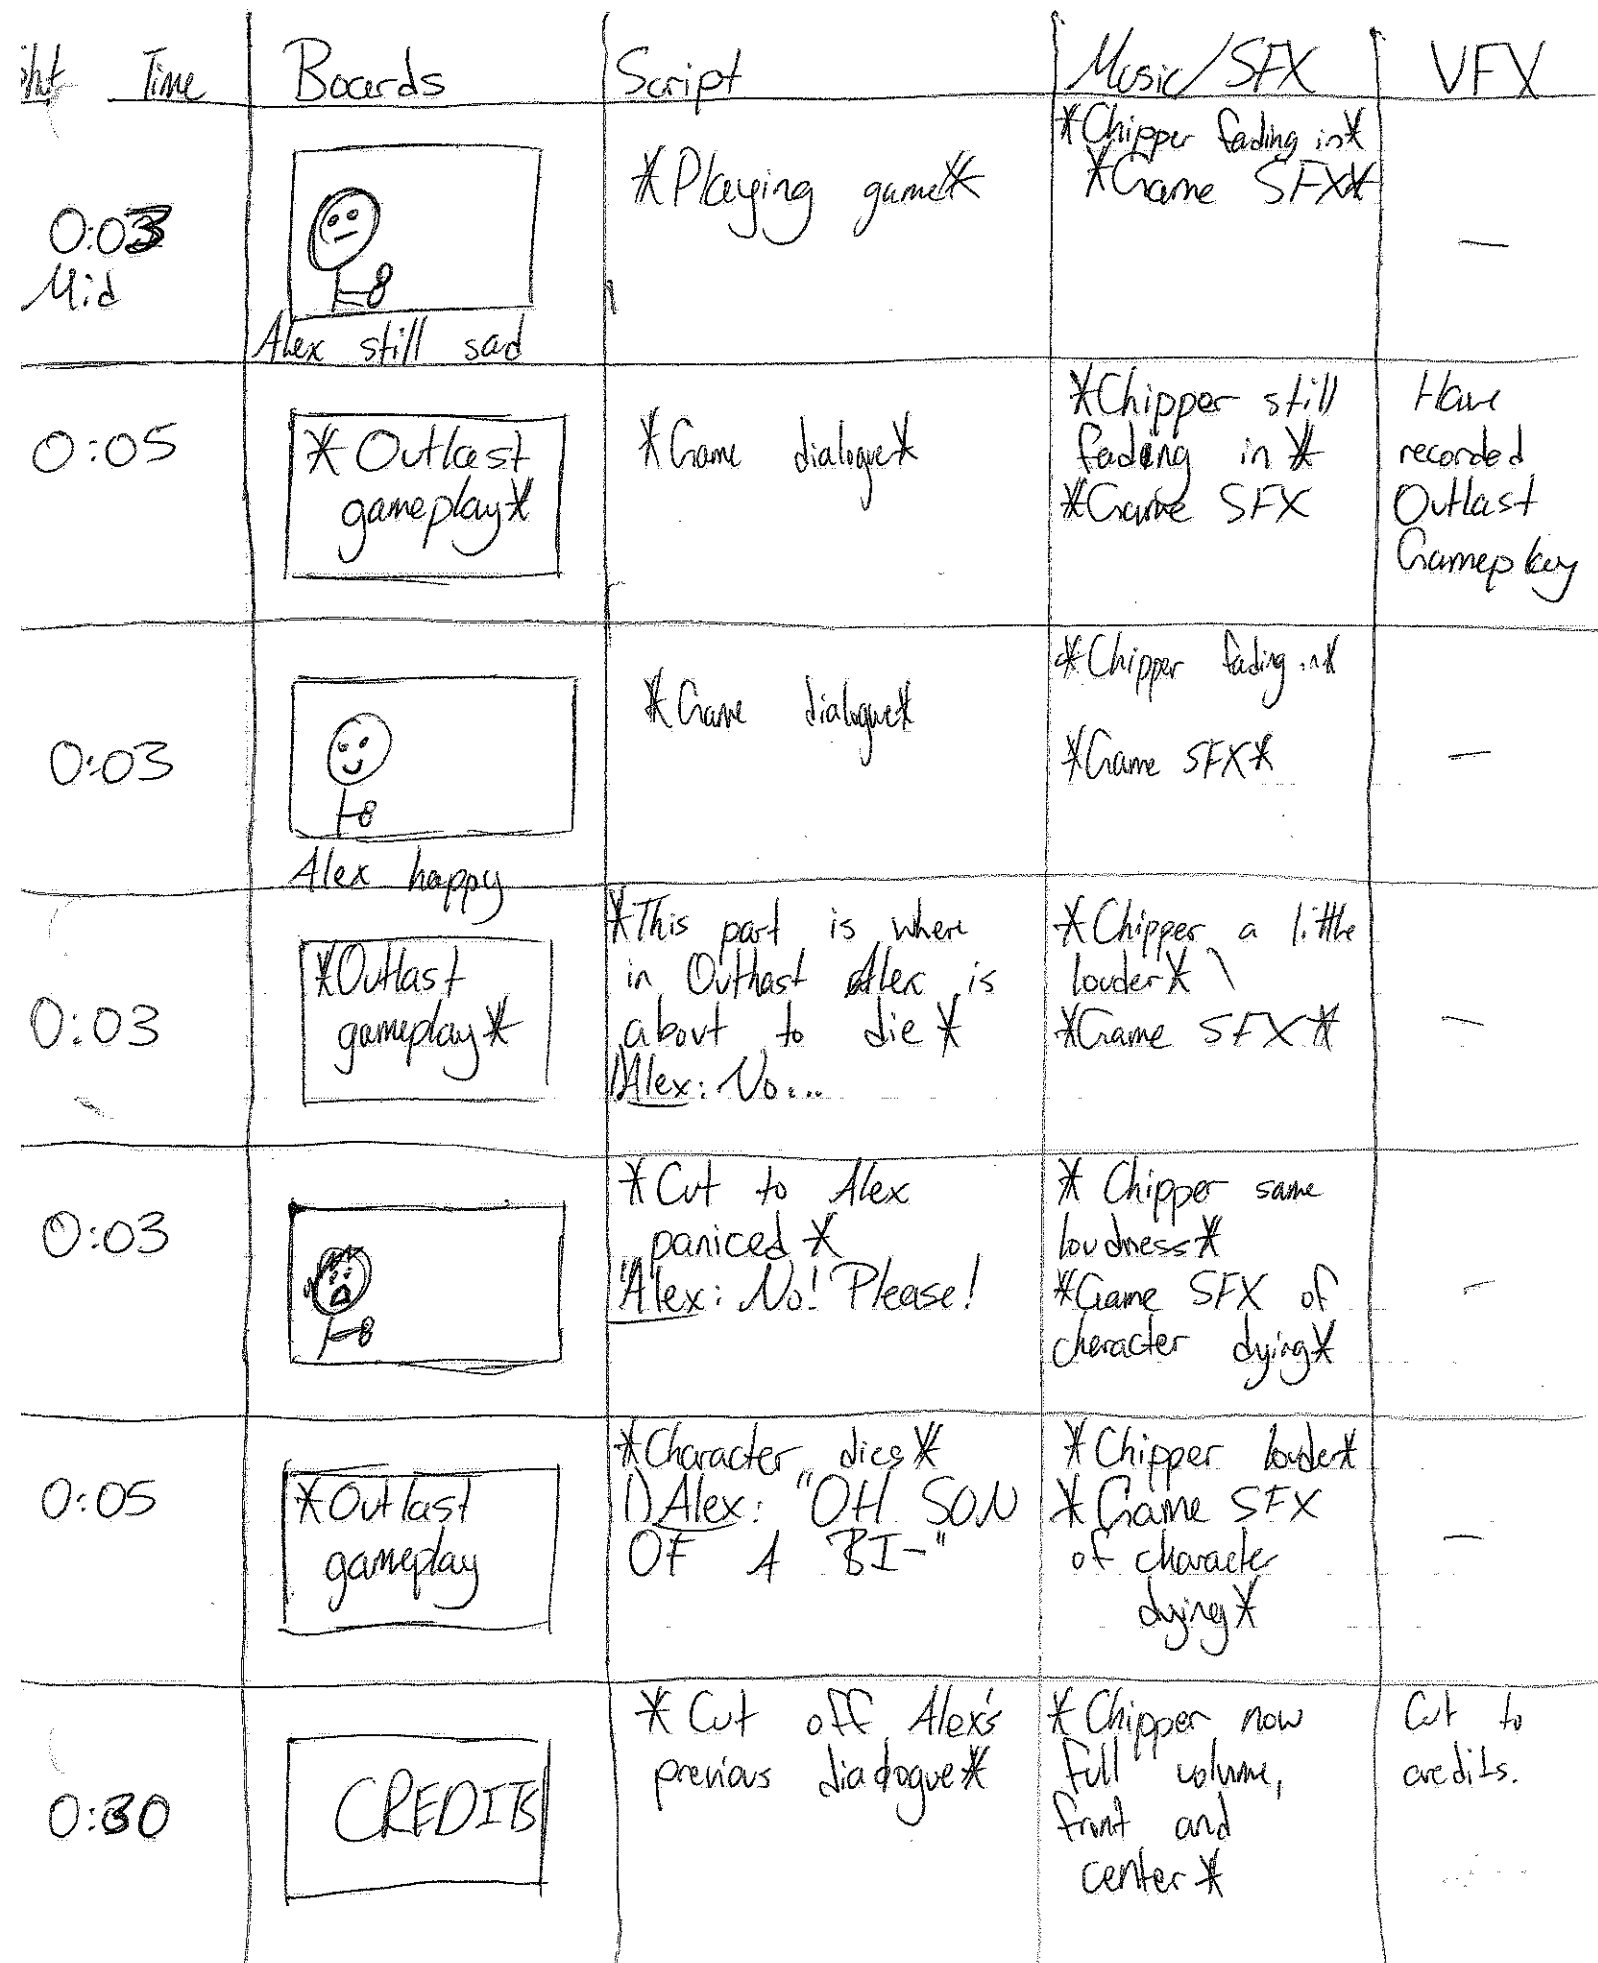 Time Boards Script Music/SFX VFX
*Chipper fading in*
*Playing game* *Game SFX*
0:03 —
Mid
Alex still sad
0:05 *Outlast gameplay* *Game dialogue* *Chipper still fading in* Have
*Game SFX recorded
Outlast
Gameplay
0:03 *Game dialogue* *Chipper fading in*
*Game SFX* —
Alex happy
0:03 *Outlast
gameplay*
*This part is where
in Outlast Alex is
about to die*
1) Alex: No...
*Chipper a little
louder*
*Game SFX*
—
0:03
*Cut to Alex
paniced*
Alex: No! Please!
*Chipper same
loudness*
*Game SFX of
cheracter dying*
—
0:05
*Outlast
gameplay
*Character dies*
1) Alex: "OH SON
OF A BI-"
*Chipper louder*
*Game SFX
of character
dying*
—
0:30
CREDITS
*Cut off Alex's
previous dialogue*
*Chipper now
full volume,
front and
center*
Cut to
credits.